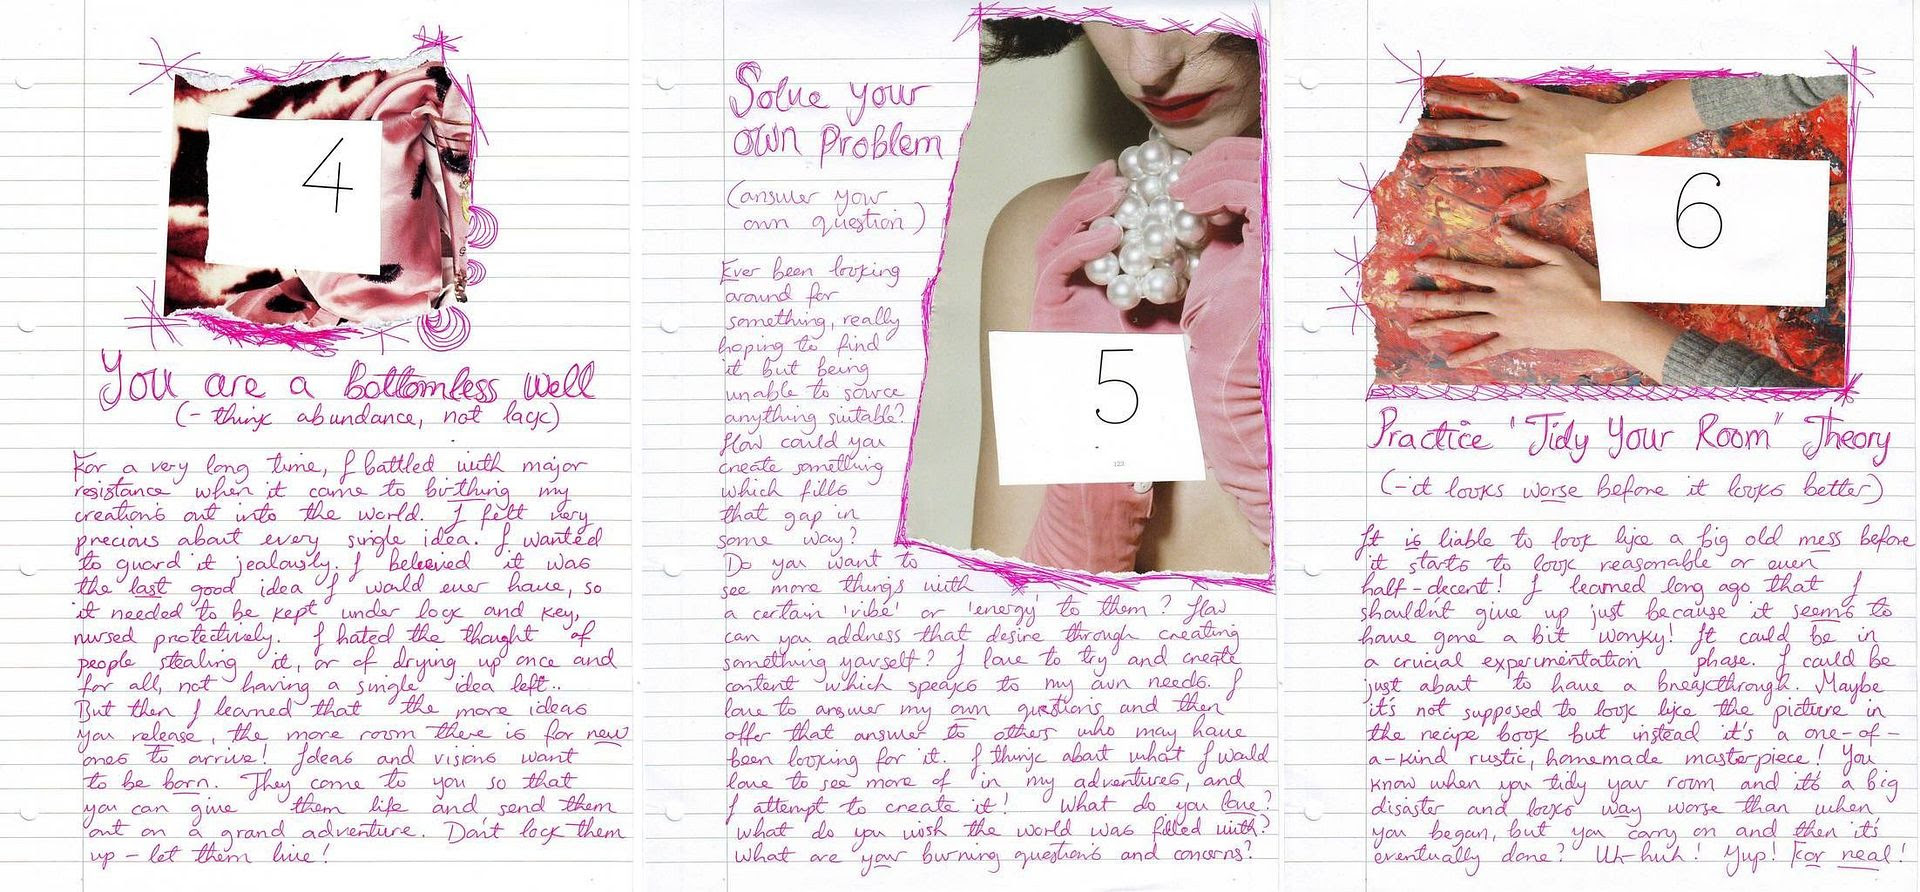 4
You are a bottomless well
(- think abundance, not lack)
For a very long time, I battled with major
resistance when it came to birthing my
creations out into the world. I felt very
precious about every single idea. I wanted
to guard it jealously. I believed it was
the last good idea I would ever have, so
it needed to be kept under lock and key,
nursed protectively. I hated the thought of
people stealing it, or of drying up once and
for all, not having a single idea left..
But then I learned that the more ideas
you release, the more room there is for new
ones to arrive! Ideas and visions want
to be born. They come to you so that
you can give them life and send them
out on a grand adventure. Don't lock them
up - let them live!
Solve your
own problem
(answer your
own question)
Ever been looking
around for
something, really
hoping to find
it but being
unable to source
anything suitable?
How could you
create something
which fills
that gap in
some way?
Do you want to
see more things with
a certain 'vibe' or 'energy' to them? How
can you address that desire through creating
something yourself? I love to try and create
content which speaks to my own needs. I
love to answer my own questions and then
offer that answer to others who may have
been looking for it. I think about what I would
love to see more of in my adventures, and
I attempt to create it! What do you love?
What do you wish the world was filled with?
What are your burning questions and concerns?
5
122
6
Practice "Tidy Your Room" Theory
(-it looks worse before it looks better)
It is liable to look like a big old mess before
it starts to look reasonable or even
half-decent! I learned long ago that I
shouldn't give up just because it seems to
have gone a bit wonky! It could be in
a crucial experimentation phase. I could be
just about to have a breakthrough. Maybe
it's not supposed to look like the picture in
the recipe book but instead it's a one-of-
a-kind rustic, homemade masterpiece! You
know when you tidy your room and it's a big
disaster and looks way worse than when
you began, but you carry on and then it's
eventually done? Uh-huh! Yup! For real!